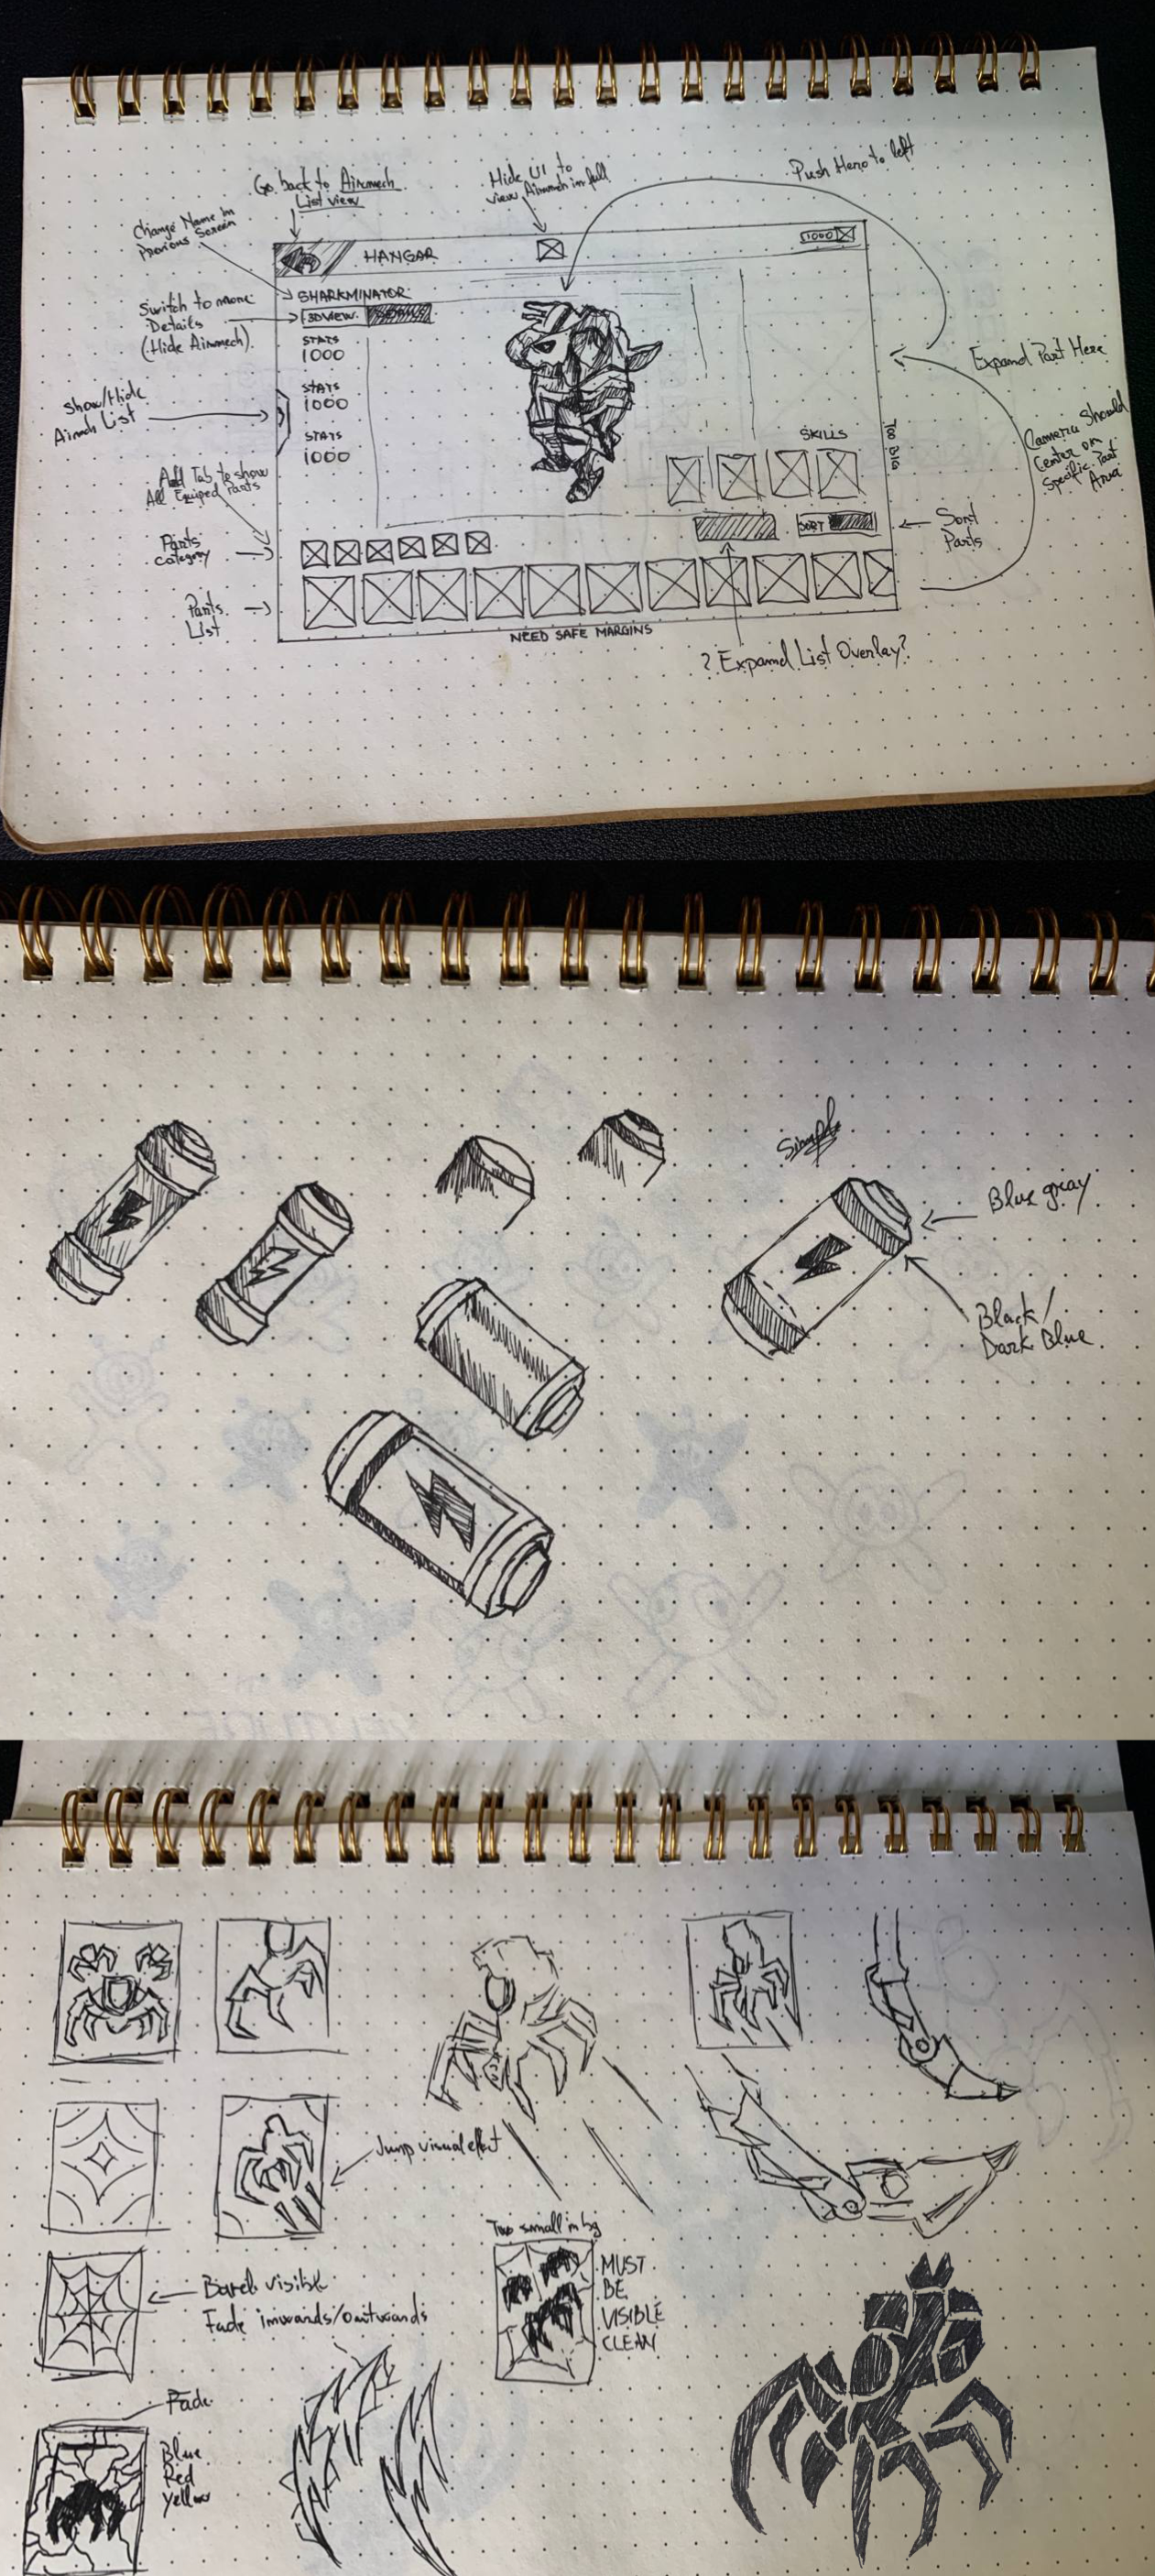 Go back to Airmech
List view
Hide UI to
view Airmech in full
Push Hero to left
Change Name in
Previous Screen
HANGAR
1000
SHARKMINATOR
Switch to more
Details
(Hide Airmech)
3D VIEW
STATS
1000
STATS
1000
STATS
1000
Show/Hide
Airmech List
Expand Part Here
TOO BIG
Camera Should
Center on
Specific Part
Area
SKILLS
Add Tab to show
All Equiped Parts
SORT
Sort
Parts
Parts
category
Parts
List
NEED SAFE MARGINS
? Expand List Overlay?
Simple
Blue gray
Black/
Dark Blue
Jump visual effect
Too small in bg
MUST
BE
VISIBLE
CLEAN
Barely visible
Fade inwards/outwards
Fade
Blue
Red
Yellow